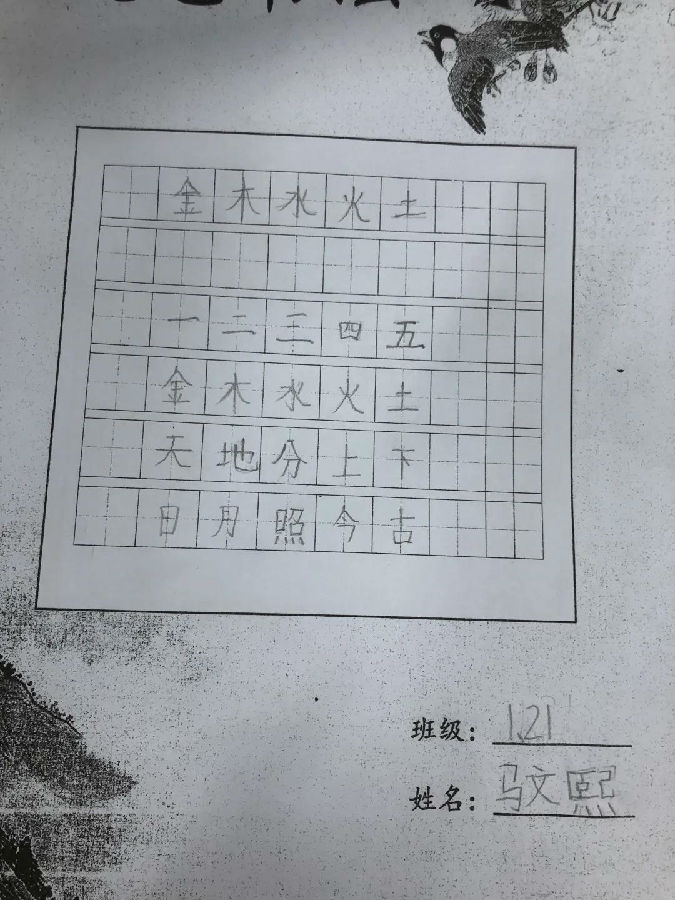 金木水火土
一二三四五
金木水火土
天地分上下
日月照今古
班级：1.21
姓名：马文熙